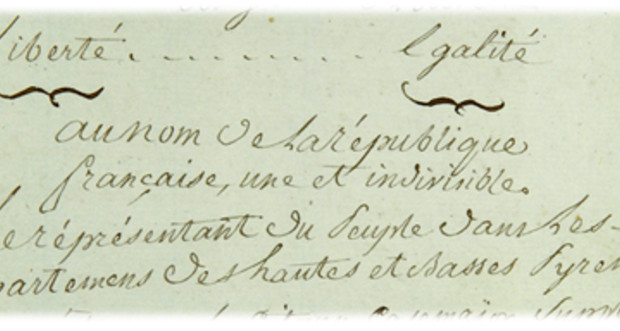 Liberté.......... Egalité
au nom de la république
française, une et indivisible.
Le réprésentant du Peuple dans les
partemens des hautes et Basses Pyren